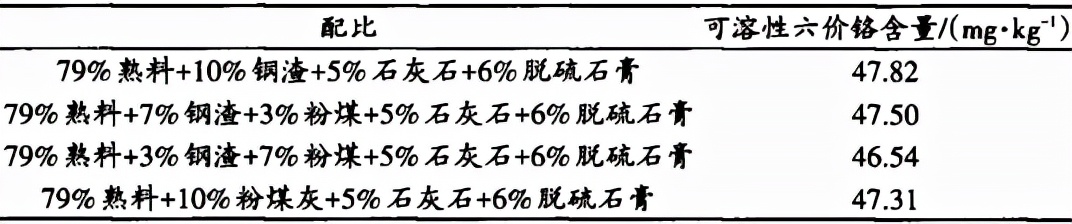 配比 可溶性六价铬含量/(mg·kg⁻¹)
79%熟料+10%钢渣+5%石灰石+6%脱硫石膏 47.82
79%熟料+7%钢渣+3%粉煤+5%石灰石+6%脱硫石膏 47.50
79%熟料+3%钢渣+7%粉煤+5%石灰石+6%脱硫石膏 46.54
79%熟料+10%粉煤灰+5%石灰石+6%脱硫石膏 47.31